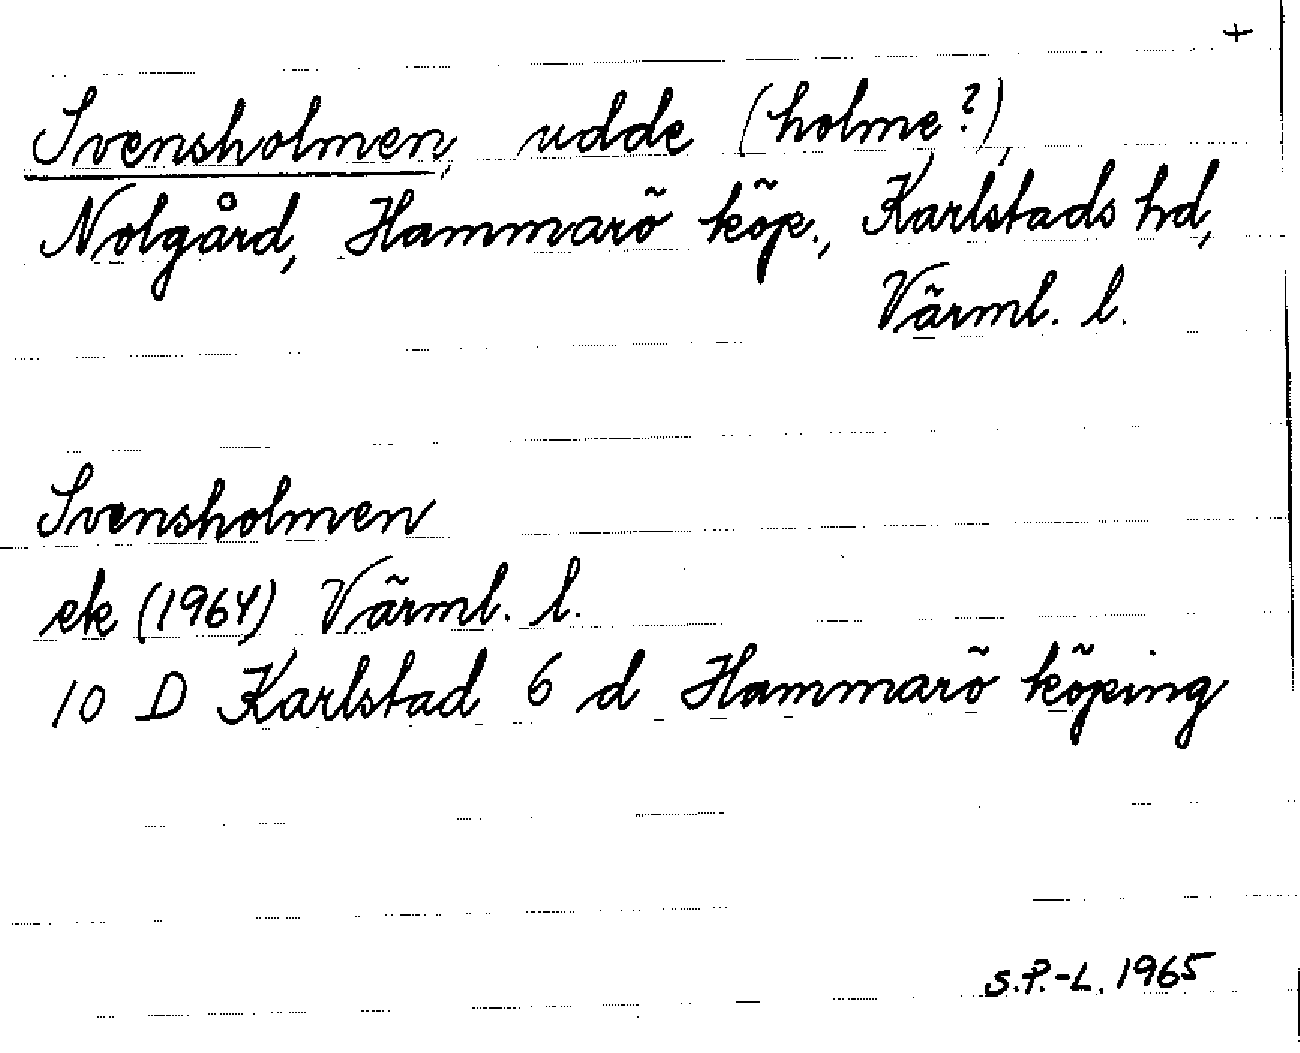 +
Svensholmen, udde (holme?),
Nolgård, Hammarö köp., Karlstads hd,
Värml. l.
Svensholmen
ek (1964) Värml. l.
10 D Karlstad 6 d Hammarö köping
S.P.-L. 1965